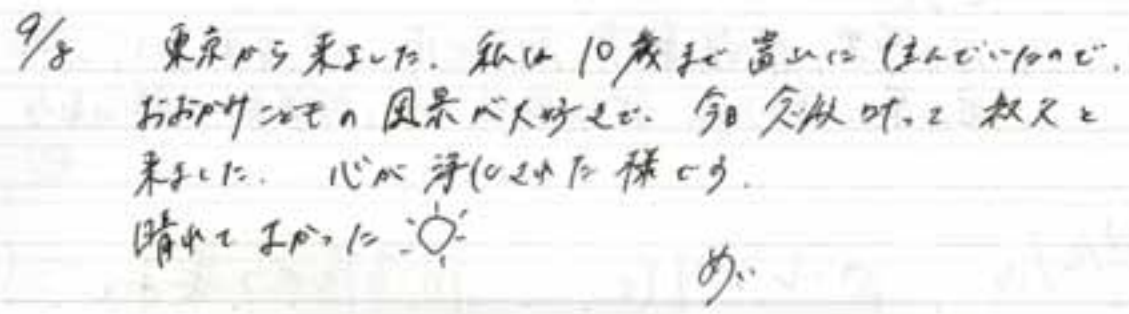 9/8 東京から来ました。私は10歳まで富山に住んでいたので、
おおかみこどもの風景が大好きで、今日念願叶って友人と
来ました。心が浄化された様です。
晴れてよかった
めい